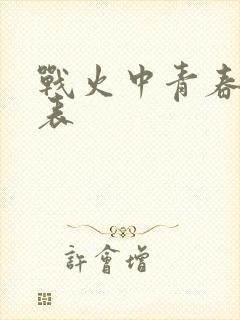 戰火中青春
表
許會增